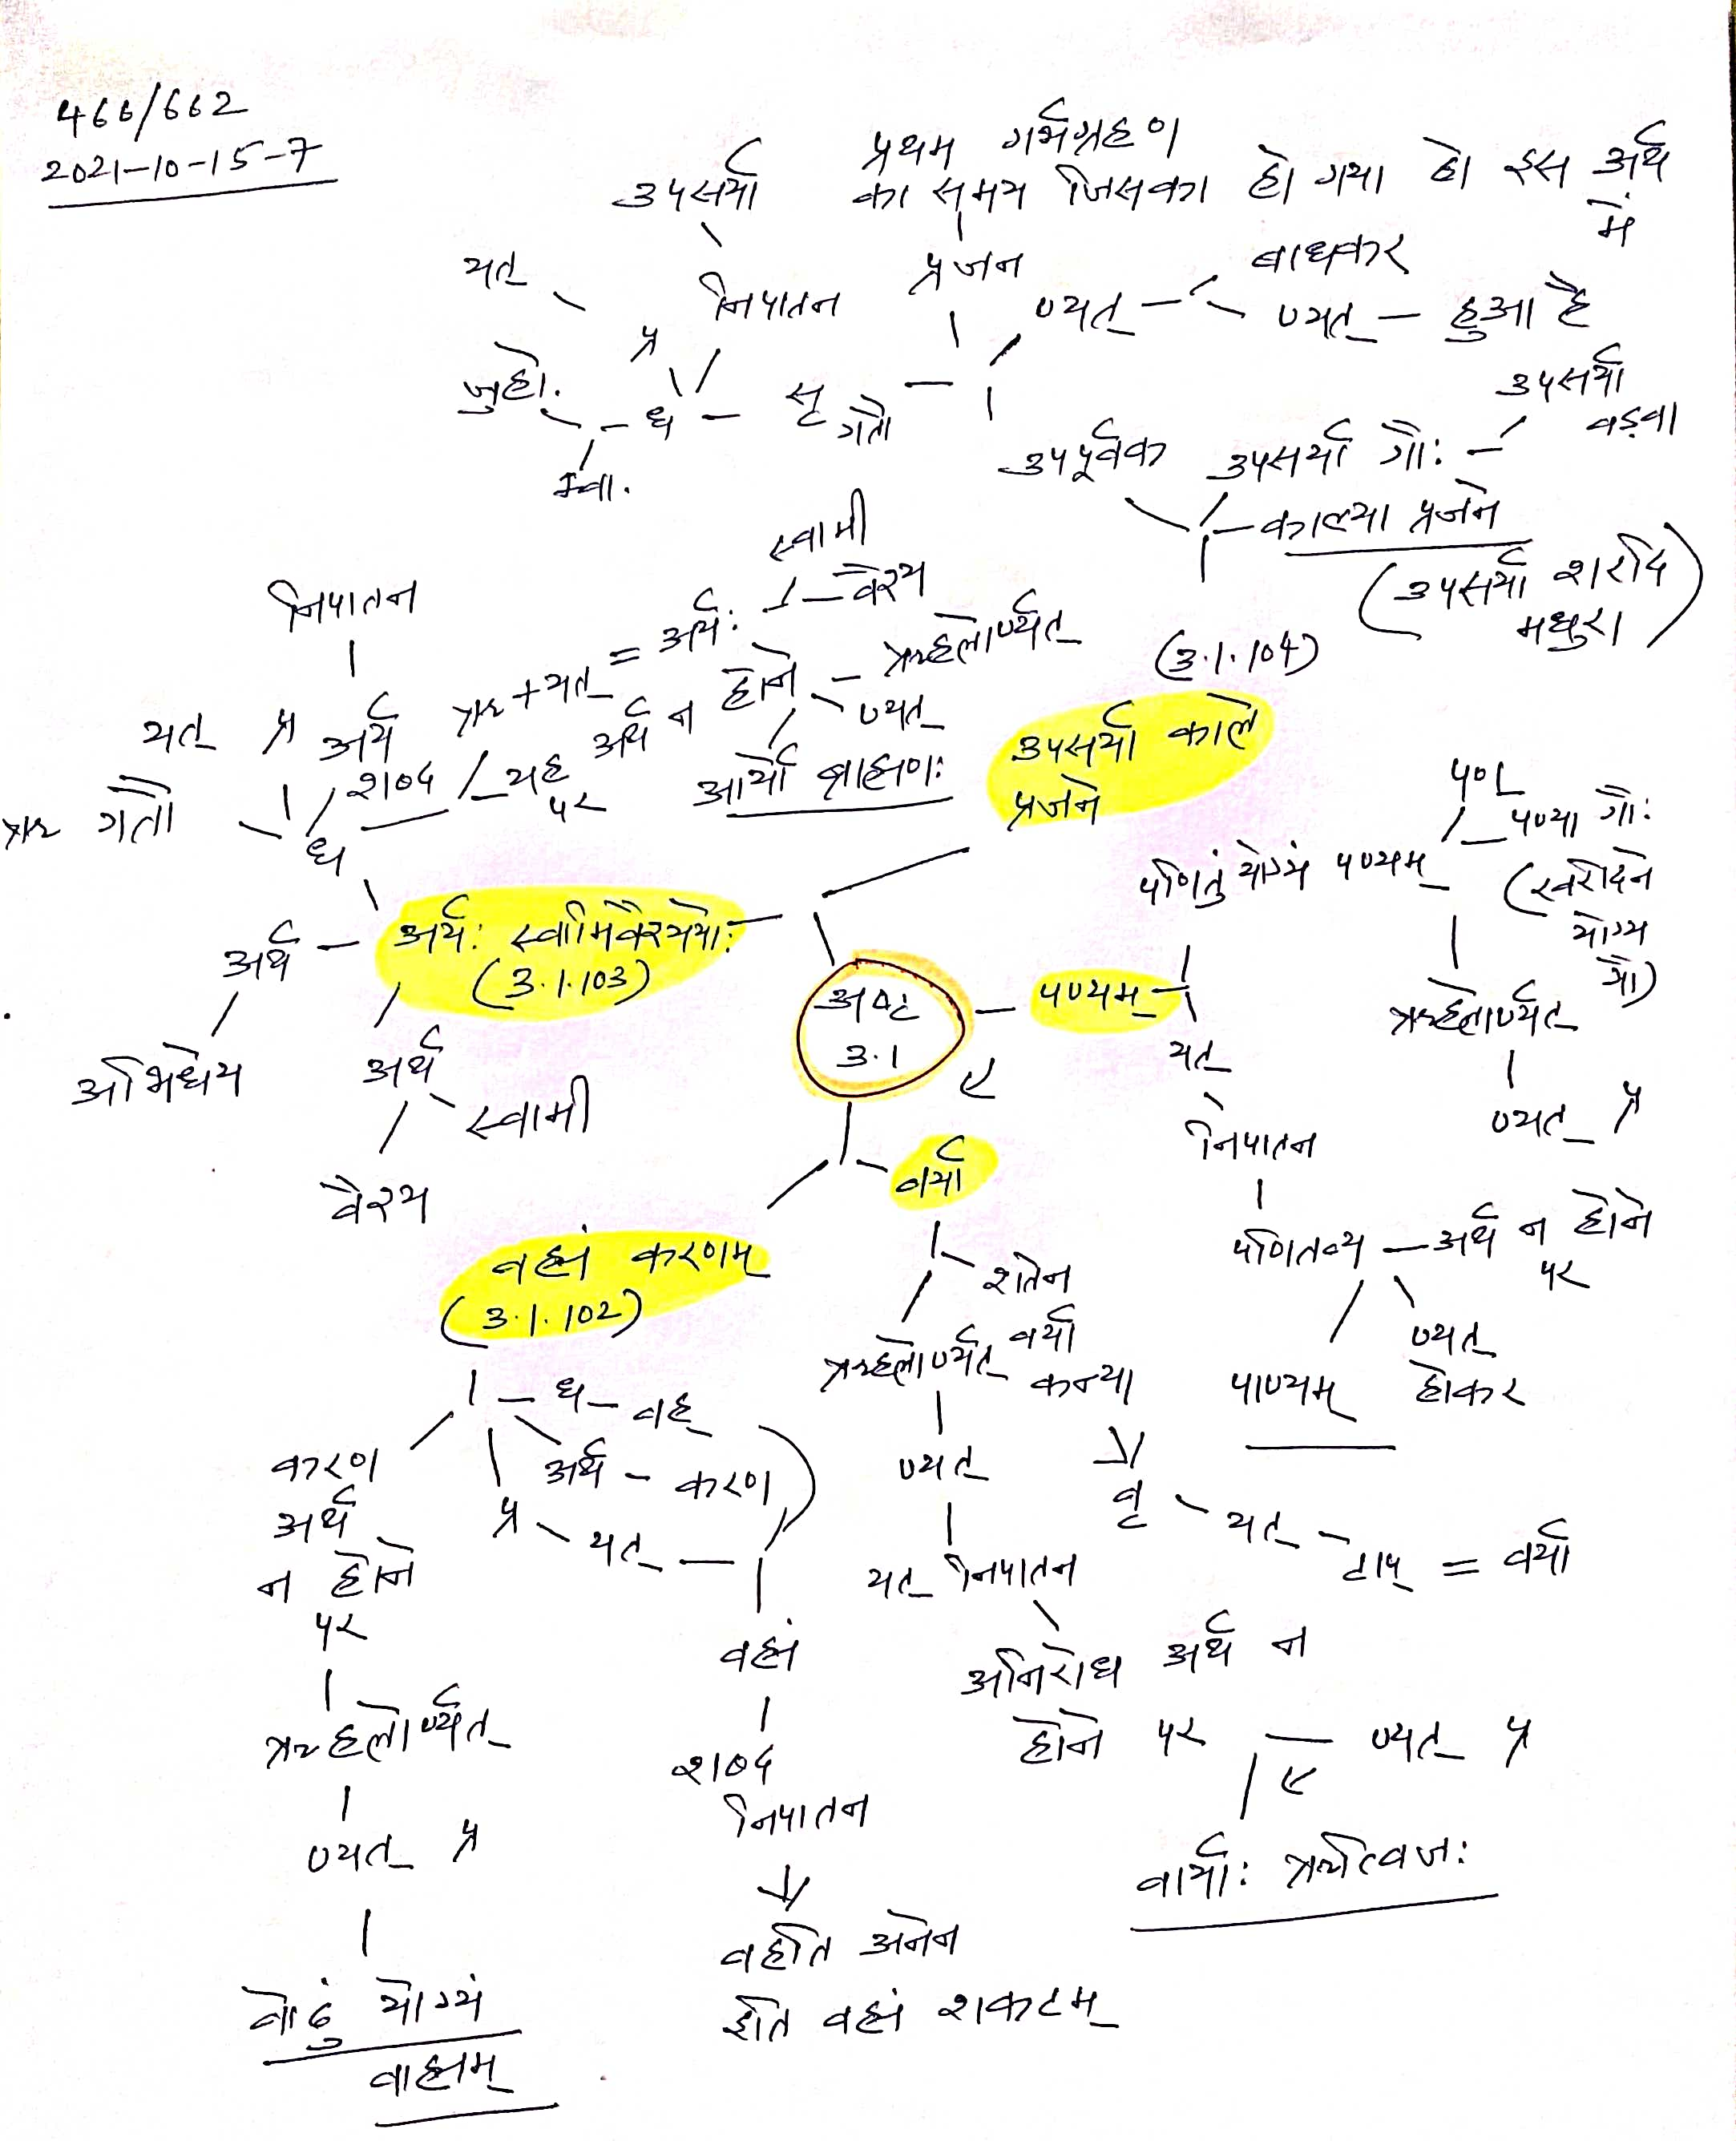 466/662
2021-10-15-7
उपसर्या
प्रथम गर्भग्रहण
का समय जिसका हो गया हो इस अर्थ
में
यत्
निपातन
प्रजन
ण्यत्
बाधकर
ण्यत् — हुआ है
प्र
जुहो.
ध — सृ गतौ
भ्वा.
उपपूर्वक
उपसर्या गौः
उपसर्या
वडवा
काल्या प्रजने
(उपसर्या शरदि
मथुरा)
(3.1.104)
उपसर्या काले
प्रजने
निपातन
यत् प्र
अर्य
शब्द
ऋ गतौ
ध
ऋ + यत् = अर्यः
स्वामी
वैश्य
यह अर्थ न होने
पर
ऋहलोर्ण्यत्
ण्यत्
आर्यो ब्राह्मणः
अर्यः स्वामिवैश्ययोः
(3.1.103)
अर्थ
अभिधेय
अर्थ
स्वामी
वैश्य
अष्ट
3.1
पण्यम्
पण्
पण्या गौः
(खरीदने
योग्य
गौ)
पणितुं योग्यं पण्यम्
ऋहलोर्ण्यत्
ण्यत् प्र
यत्
निपातन
पणितव्य — अर्थ न होने
पर
ण्यत्
होकर
पाण्यम्
वर्या
शतेन
वर्या
कन्या
ऋहलोर्ण्यत्
ण्यत्
यत् निपातन
वृ - यत् - टाप् = वर्या
अनिरोध अर्थ न
होने पर — ण्यत् प्र
वार्याः ऋत्विजः
वह्यं करणम्
(3.1.102)
ध — वह्
अर्थ - करण
प्र - यत्
करण
अर्थ
न होने
पर
ऋहलोर्ण्यत्
ण्यत् प्र
वोढुं योग्यं
वाह्यम्
वह्यं
शब्द
निपातन
वहति अनेन
इति वह्यं शकटम्